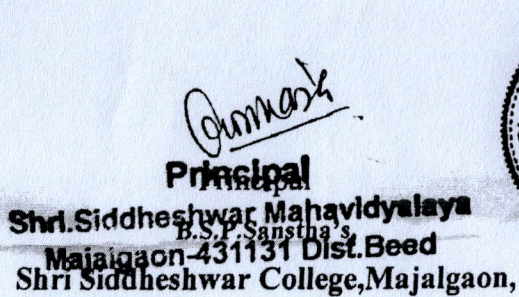 Principal
Principal
Shri.Siddheshwar Mahavidyalaya
B.S.P.Sanstha's
Majalgaon-431131 Dist.Beed
Shri Siddheshwar College,Majalgaon,